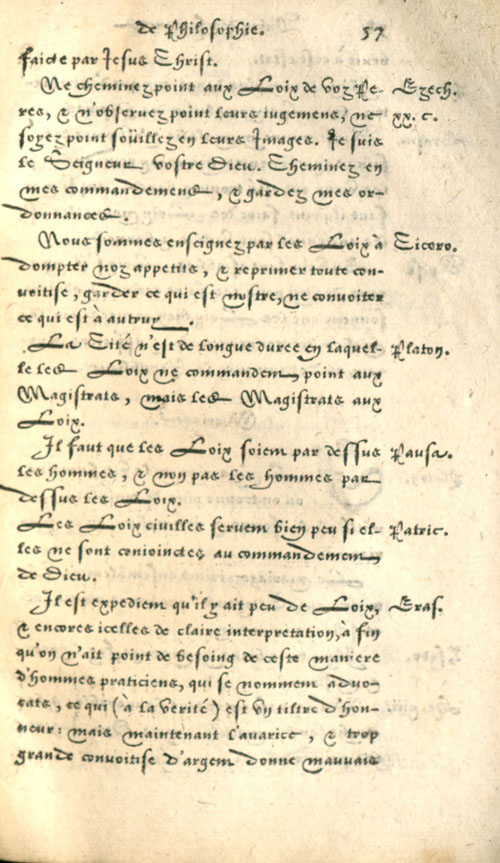 de Philosophie. 57
faicte par Jesus Christ.
Ne cheminez point aux Loix de voz Pe- Ezech.
res, & n'observez point leurs iugemens, ne xx. c.
soyez point soüillez en leurs Images. Je suis
le Seigneur vostre Dieu. Cheminez en
mes commandemens, & gardez mes or-
donnances.
Nous sommes enseignez par les Loix à Cicero.
dompter noz appetits, & reprimer toute con-
uoitise, garder ce qui est nostre, ne convoiter
ce qui est à autruy.
La Cité n'est de longue duree en laquel- Platon.
le les Loix ne commandent point aux
Magistrats, mais les Magistrats aux
Loix.
Il faut que les Loix soient par dessus Pausa.
les hommes, & non pas les hommes par
dessus les Loix.
Les Loix civilles servent bien peu si el- Patric.
les ne sont conioinctes au commandement
de Dieu.
Il est expedient qu'il y ait peu de Loix, Eras.
& encores icelles de claire interpretation, à fin
qu'on n'ait point de besoing de ceste maniere
d'hommes praticiens, qui se nomment advo-
cats, ce qui (à la verité) est vn tiltre d'hon-
neur: mais maintenant l'avarice, & trop
grande convoitise d'argent donne mauvais